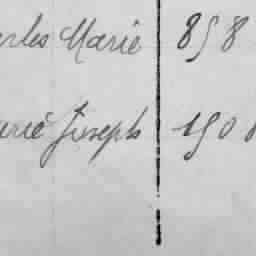 rles Marie 858
arie Joseph 150